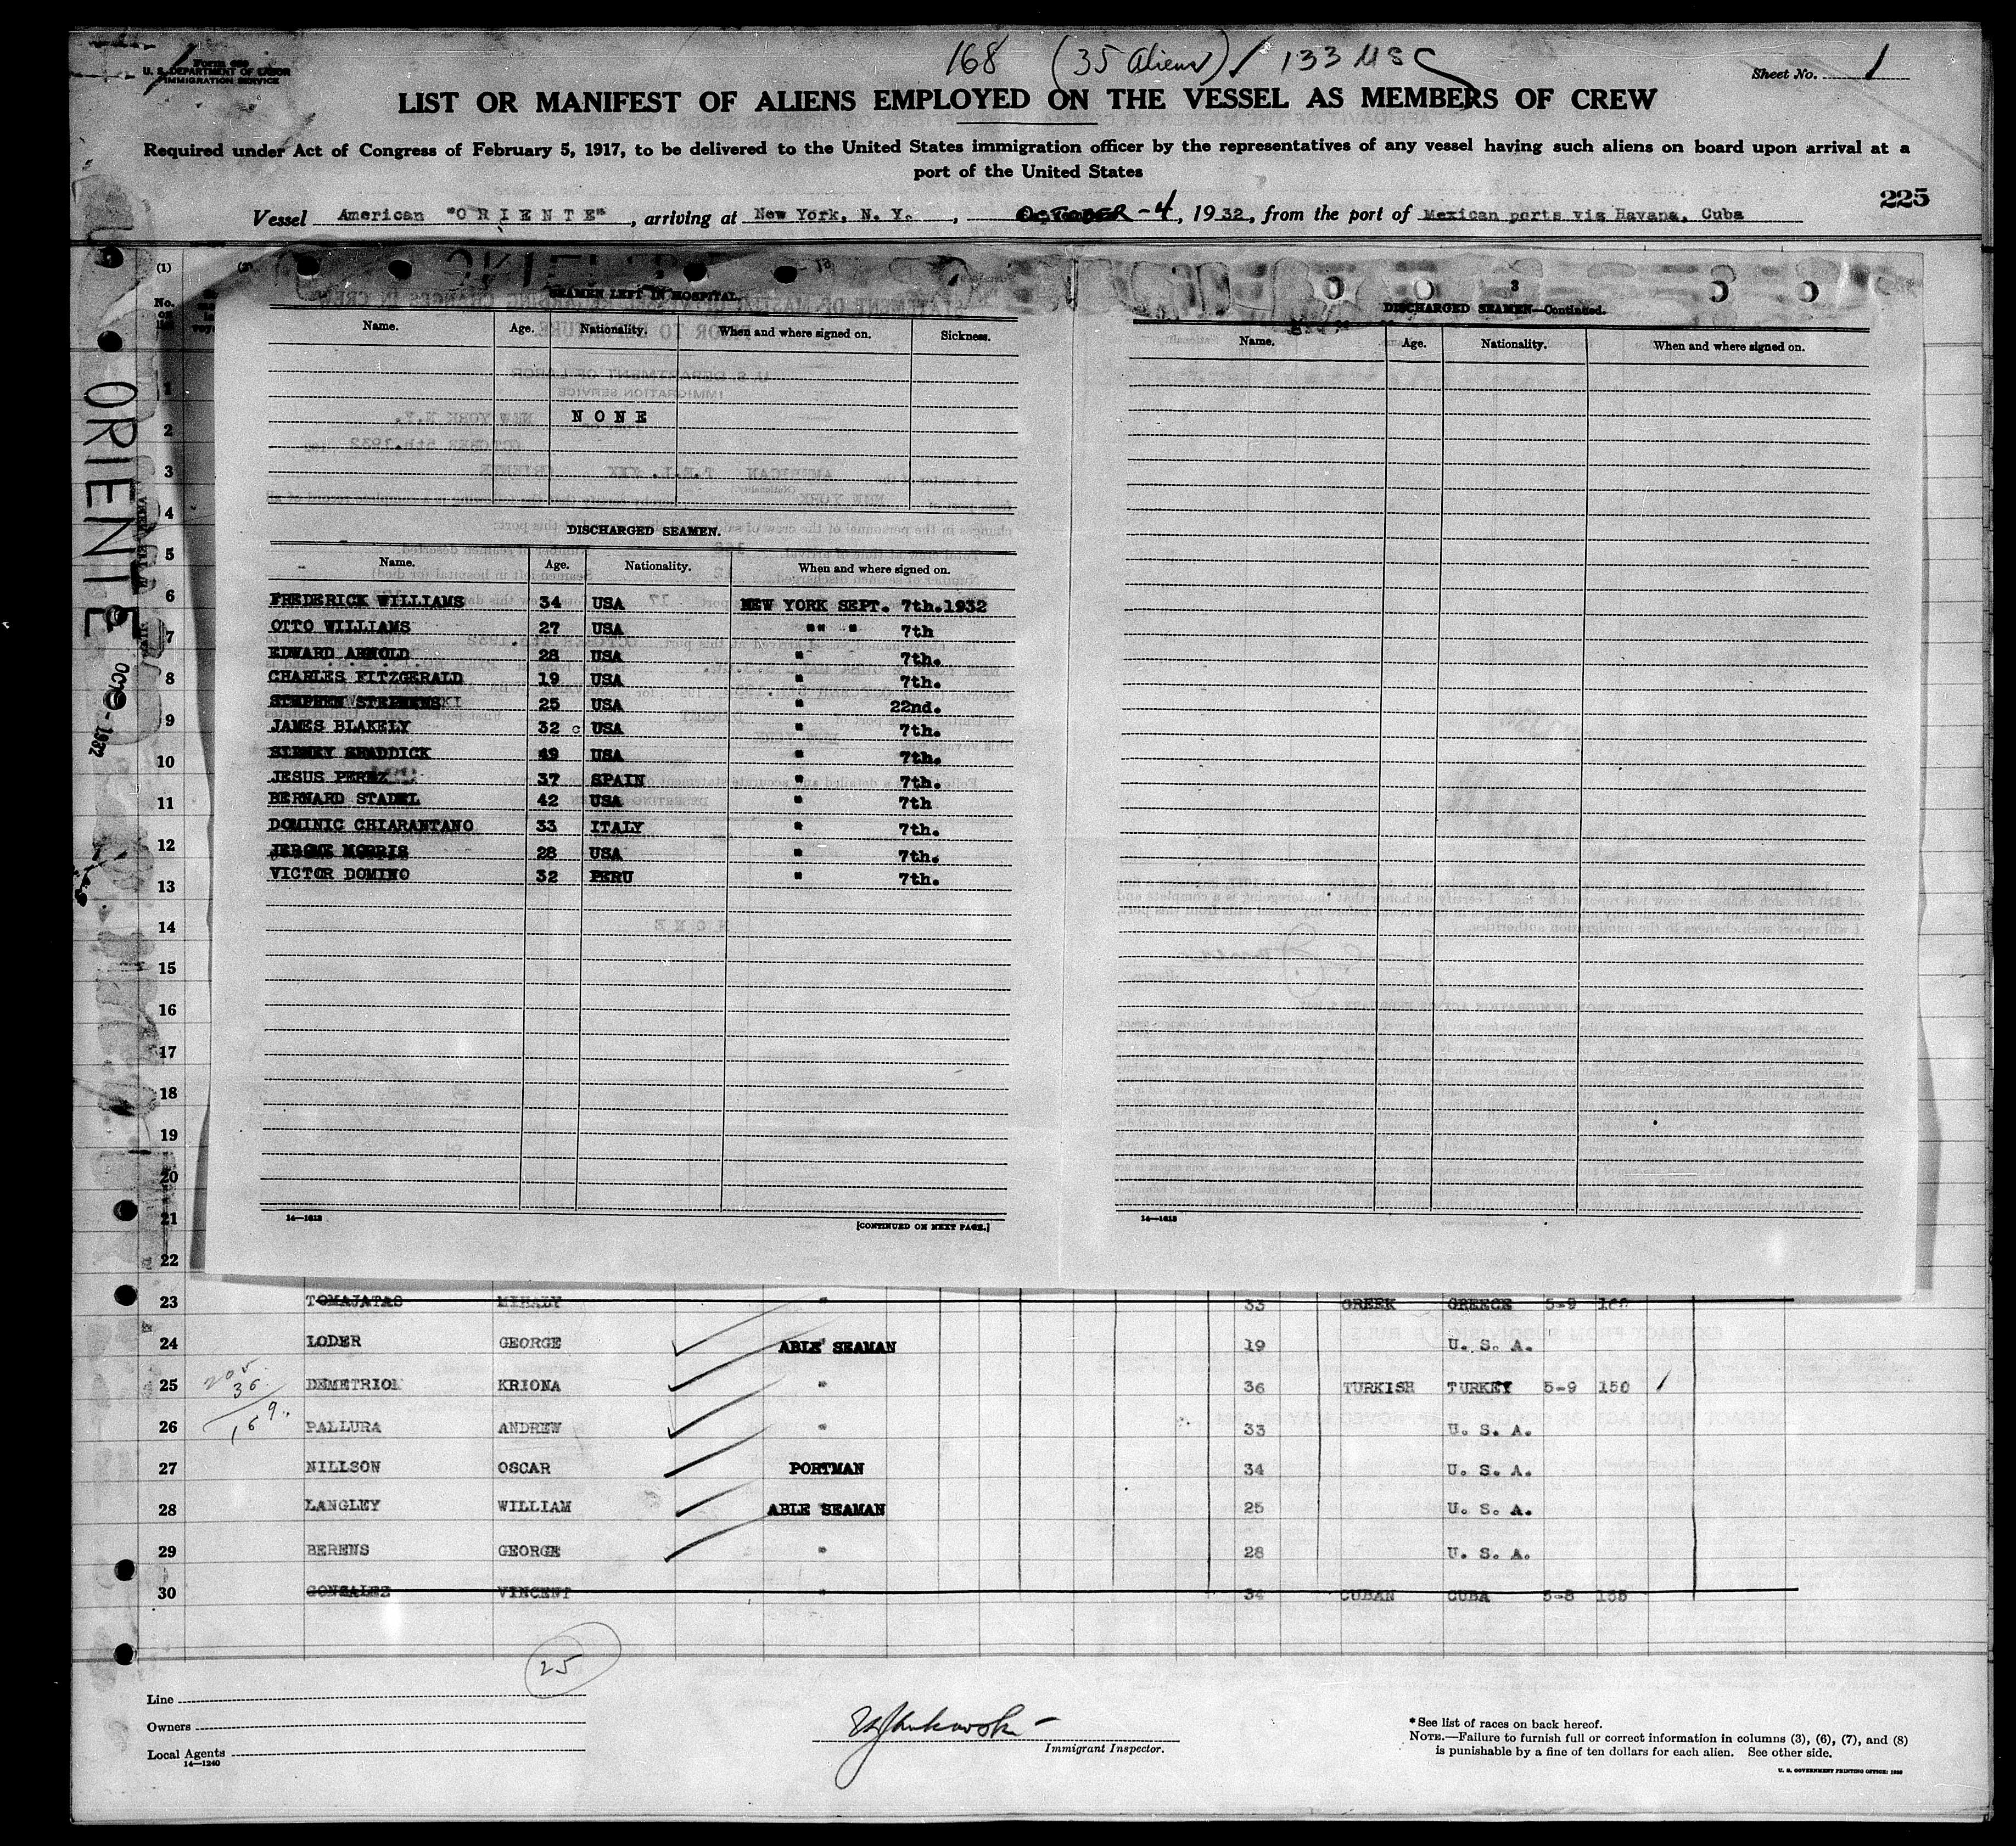 168 (35 Aliens) / 133 USC
Form 680
U. S. DEPARTMENT OF LABOR
IMMIGRATION SERVICE
Sheet No. 1
LIST OR MANIFEST OF ALIENS EMPLOYED ON THE VESSEL AS MEMBERS OF CREW
Required under Act of Congress of February 5, 1917, to be delivered to the United States immigration officer by the representatives of any vessel having such aliens on board upon arrival at a
port of the United States
225
Vessel American "ORIENTE", arriving at New York, N. Y., OCTOBER-4, 1932, from the port of Mexican ports via Havana, Cuba
(1)
No. on list
ORIENTE
OCT -1932
SEAMEN LEFT IN HOSPITAL.
Name. Age. Nationality. When and where signed on. Sickness.
NONE
DISCHARGED SEAMEN.
Name. Age. Nationality. When and where signed on.
FREDERICK WILLIAMS 34 USA NEW YORK SEPT. 7th.1932
OTTO WILLIAMS 27 USA "" " 7th
EDWARD ARNOLD 28 USA " 7th.
CHARLES FITZGERALD 19 USA " 7th.
STEPHEN STEPHENS 25 USA " 22nd.
JAMES BLAKELY 32 c USA " 7th.
SIDNEY SHADDICK 49 USA " 7th.
JESUS PEREZ 37 SPAIN " 7th.
BERNARD STADEL 42 USA " 7th
DOMINIC CHIARANTANO 33 ITALY " 7th.
JEROME MORRIS 28 USA " 7th.
VICTOR DOMINO 32 PERU " 7th.
14—1618
[CONTINUED ON NEXT PAGE.]
3
DISCHARGED SEAMEN—Continued.
Name. Age. Nationality. When and where signed on.
14—1618
1
2
3
4
5
6
7
8
9
10
11
12
13
14
15
16
17
18
19
20
21
22
23 TOMAJATAS MIHALY " 33 GREEK GREECE 5-9 160
24 LODER GEORGE ABLE SEAMAN 19 U. S. A.
25 DEMETRIOU KRIONA " 36 TURKISH TURKEY 5-9 150
26 PALLURA ANDREW " 33 U. S. A.
27 NILLSON OSCAR PORTMAN 34 U. S. A.
28 LANGLEY WILLIAM ABLE SEAMAN 25 U. S. A.
29 BERENS GEORGE " 28 U. S. A.
30 GONZALEZ VINCENT " 34 CUBAN CUBA 5-8 155
205
36
169
25
Line
Owners
Local Agents
14—1240
Immigrant Inspector.
*See list of races on back hereof.
NOTE.—Failure to furnish full or correct information in columns (3), (6), (7), and (8)
is punishable by a fine of ten dollars for each alien. See other side.